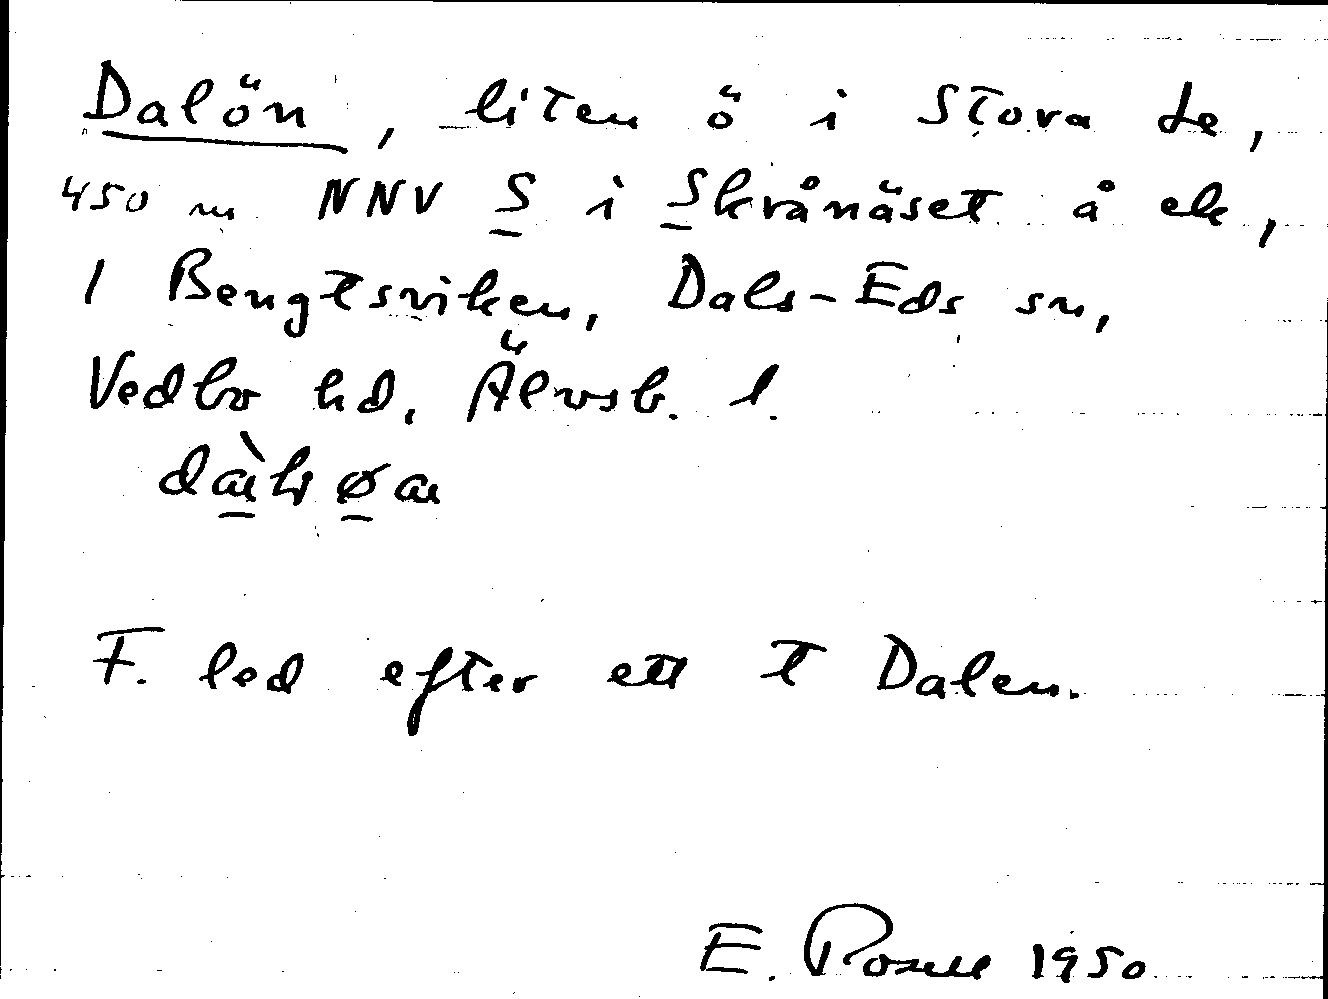 Dalön, liten ö i Stora Le,
450 m NNV S i Skrånäset å ek,
i Bengtsviken, Dals-Eds sn,
Vedbo hd. Älvsb. l.
F. led efter ett t Dalen.
E. 1950